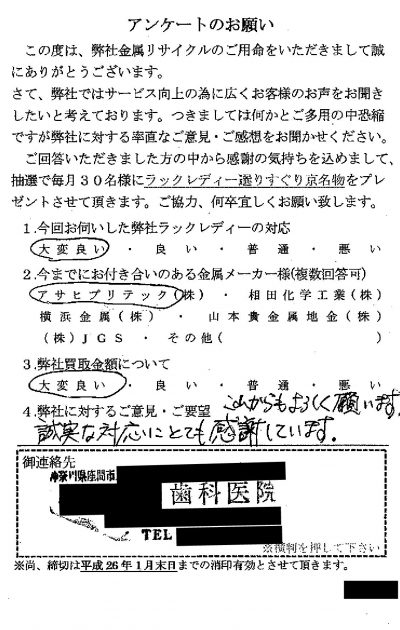 アンケートのお願い
この度は、弊社金属リサイクルのご用命をいただきまして誠
にありがとうございます。
さて、弊社ではサービス向上の為に広くお客様のお声をお聞き
したいと考えております。つきましては何かとご多用の中恐縮
ですが弊社に対する率直なご意見・ご感想をお聞かせください。
ご回答いただきました方の中から感謝の気持ちを込めまして、
抽選で毎月30名様にラックレディー選りすぐり京名物をプレ
ゼントさせて頂きます。ご協力、何卒宜しくお願い致します。
1.今回お伺いした弊社ラックレディーの対応
大変良い ・ 良い ・ 普通 ・ 悪い
2.今までにお付き合いのある金属メーカー様(複数回答可)
アサヒプリテック(株) ・ 相田化学工業(株)
横浜金属(株) ・ 山本貴金属地金(株)
(株)JGS ・ その他( )
3.弊社買取金額について
大変良い ・ 良い ・ 普通 ・ 悪い
4.弊社に対するご意見・ご要望 これからもよろしく願います。
誠実な対応にとても感謝しています。
御連絡先
神奈川県座間市
歯科医院
TEL
※横判を押して下さい
※尚、締切は平成26年1月末日までの消印有効とさせて頂きます。